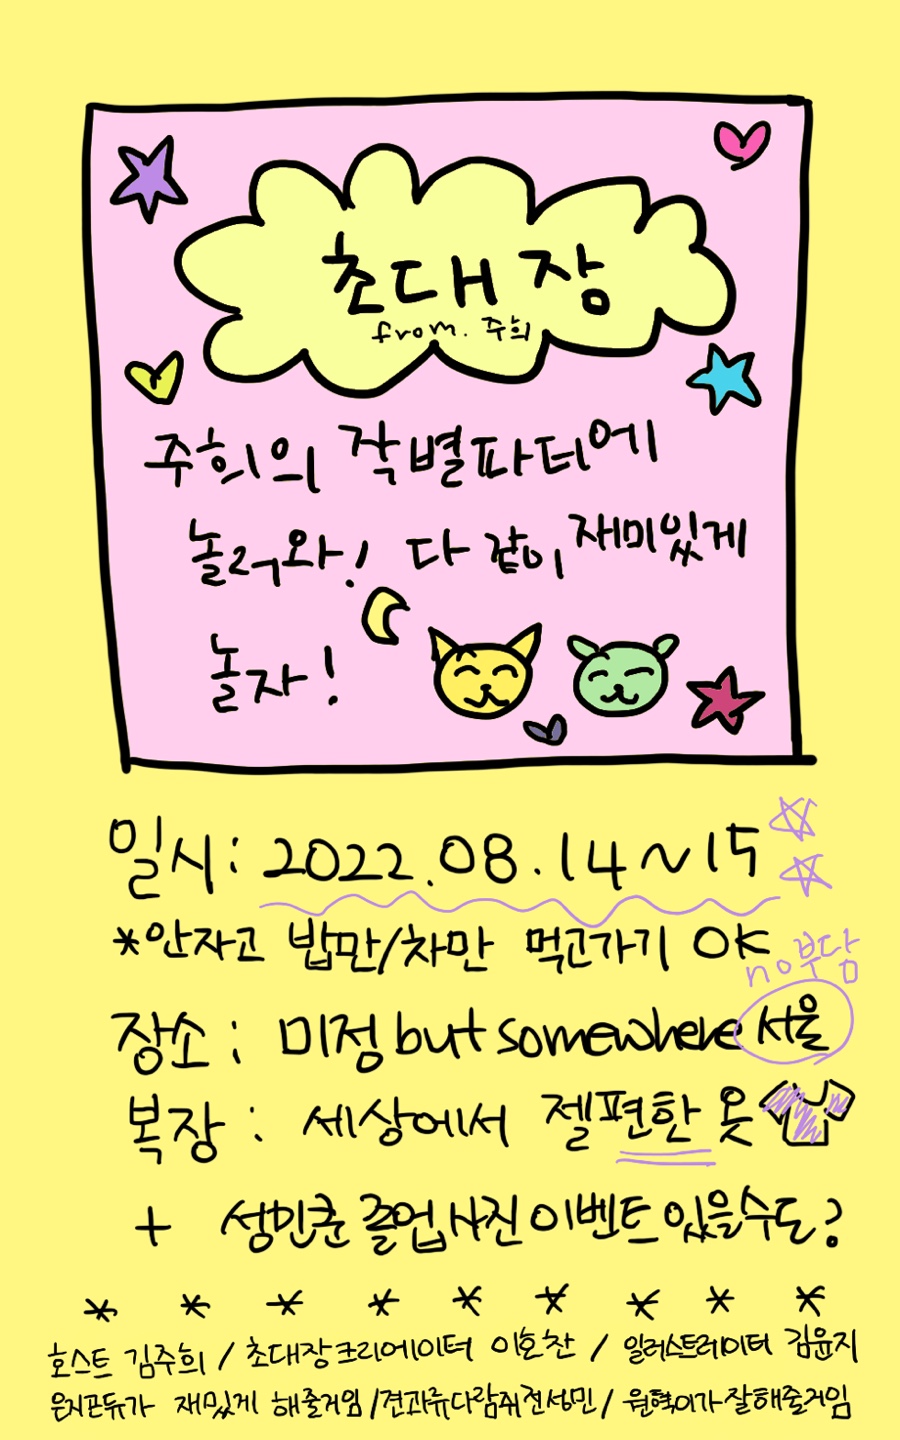 초대장
from. 주희
주희의 작별파티에
놀러와! 다 같이 재미있게
놀자!
일시: 2022.08.14~15
*안자고 밥만/차만 먹고가기 OK
no부담
장소: 미정 but somewhere 서울
복장: 세상에서 젤편한 옷
+ 성민쿤 졸업사진이벤트 있을수도?
* * * * * * * * *
호스트 김주희 / 초대장크리에이터 이호찬 / 일러스트레이터 김윤지
재밌게 해줄거임 / 견과류다람쥐전성민 / 원혁이가잘해줄거임